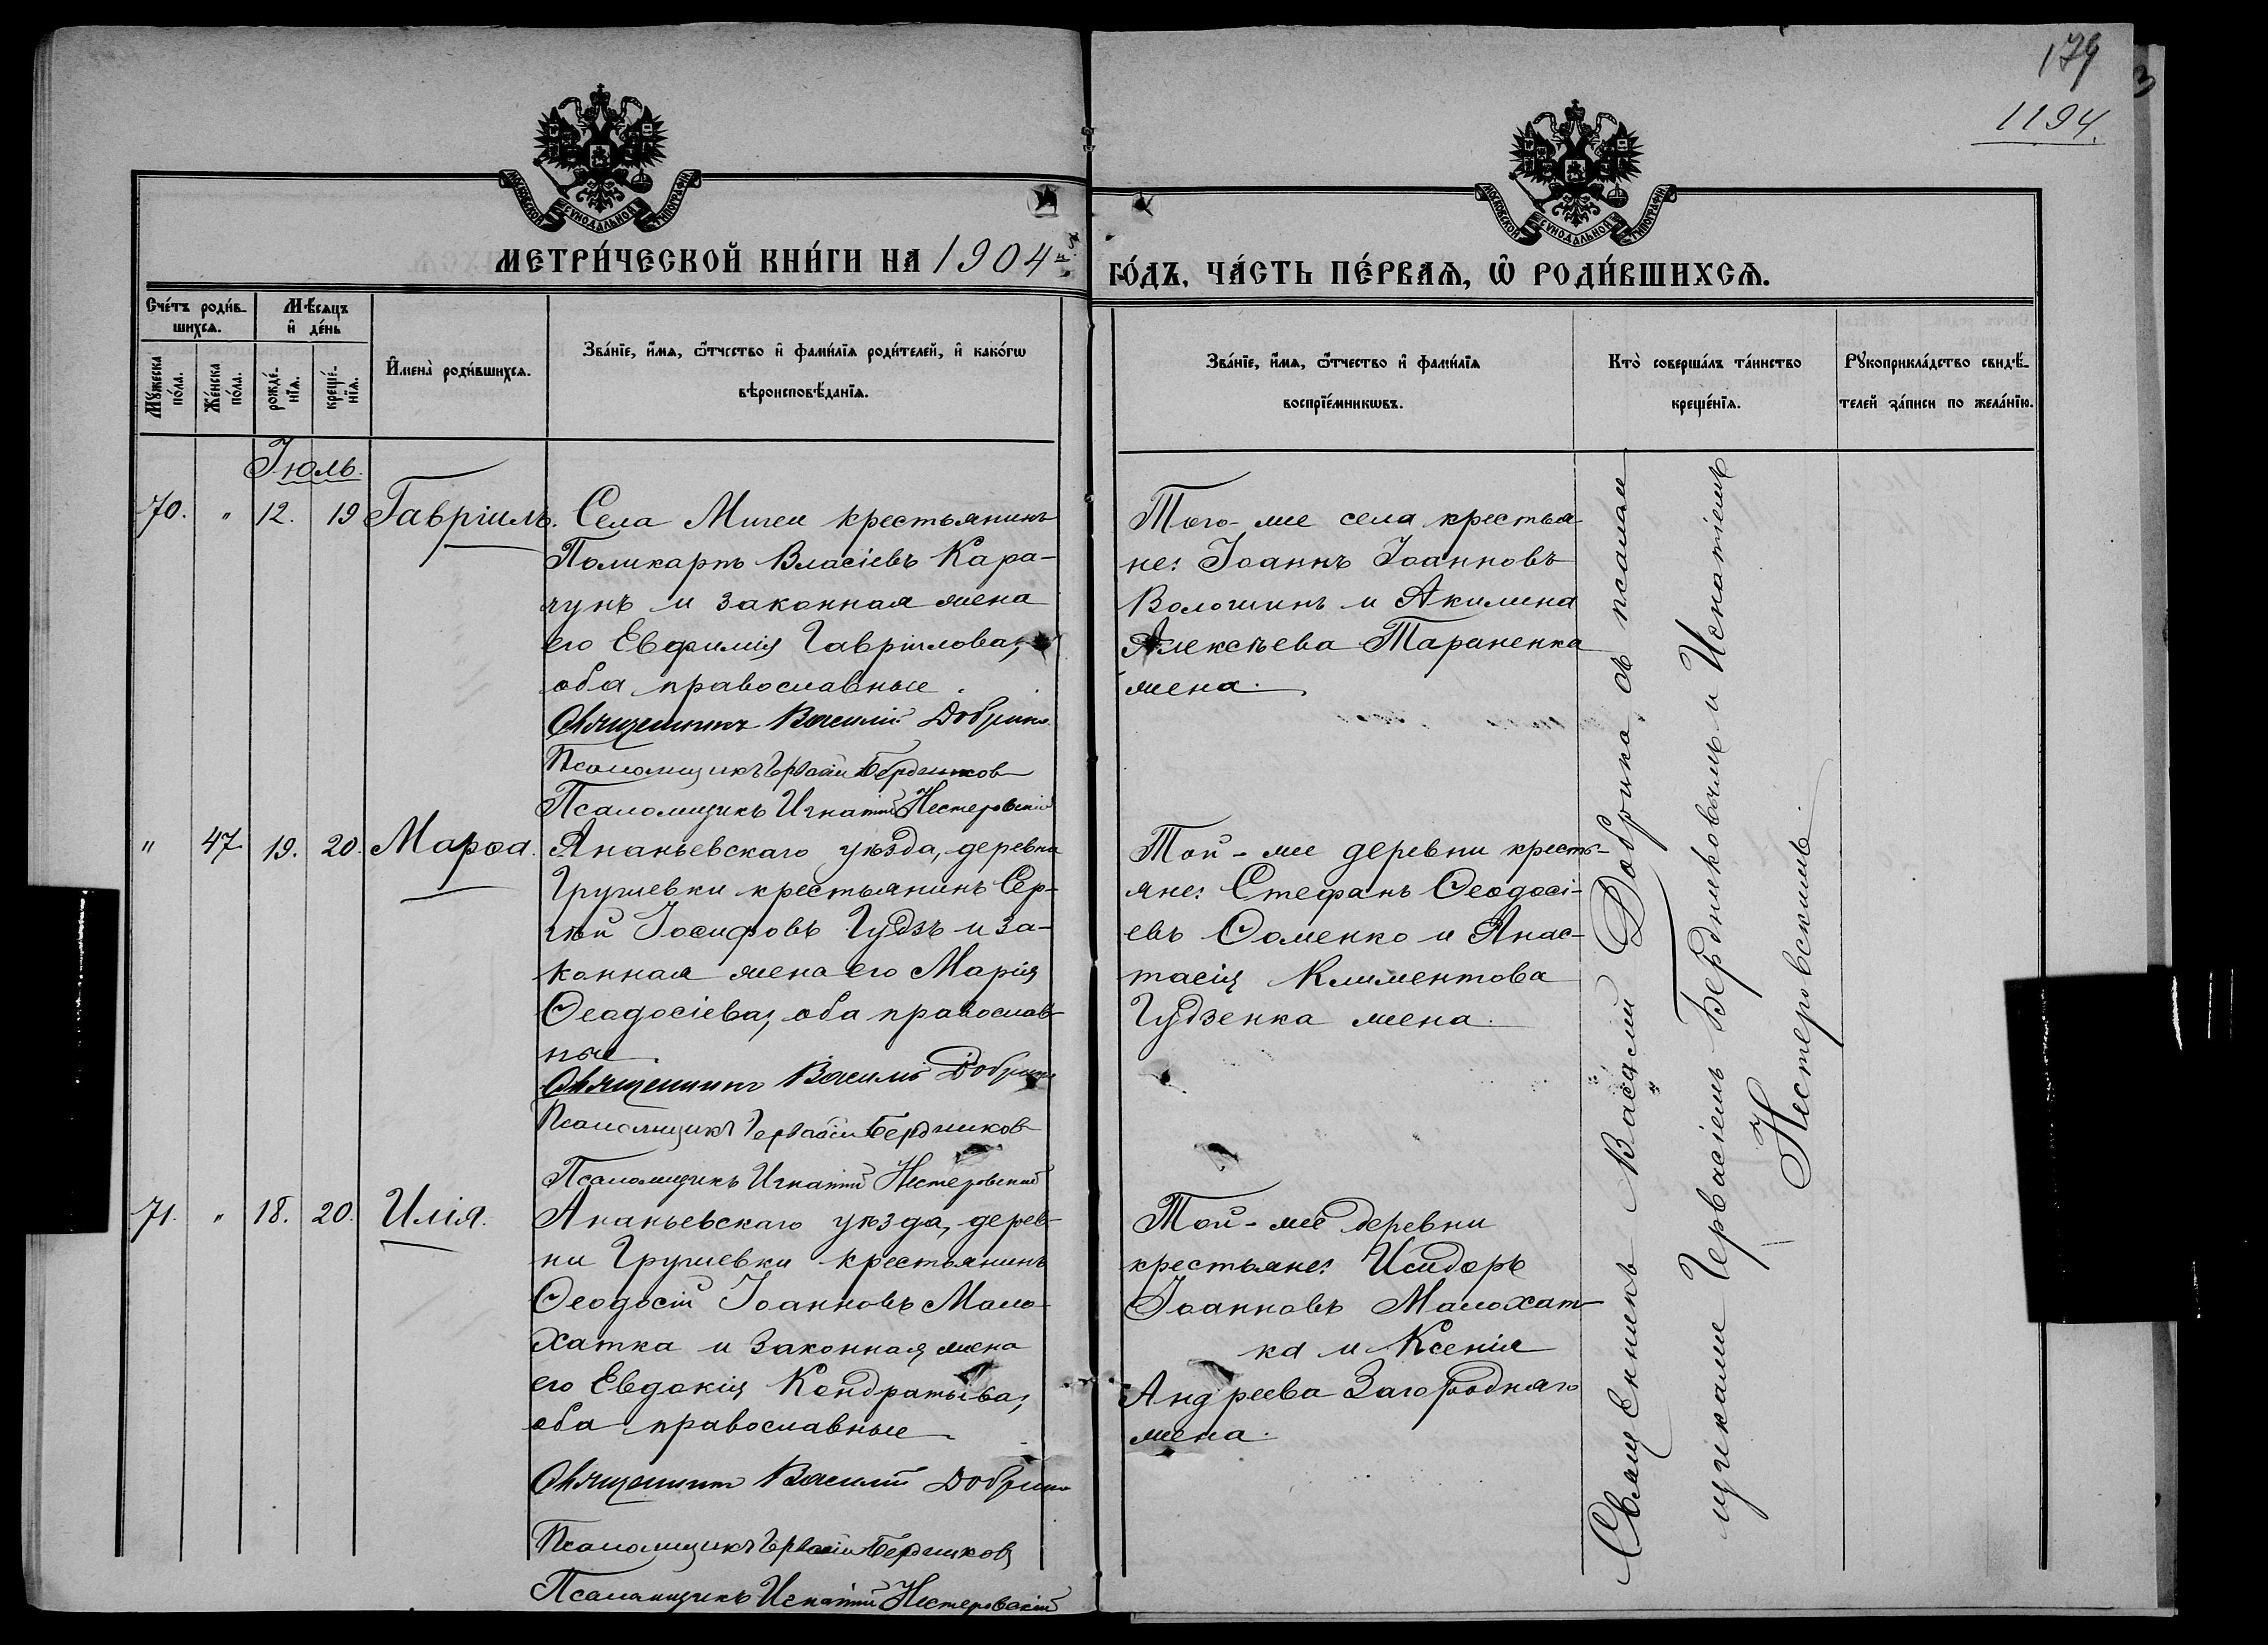 179
1194.
МОСКОВСКОЙ СѴНОДАЛЬНОЙ ТИПОГРАФІИ
МОСКОВСКОЙ СѴНОДАЛЬНОЙ ТИПОГРАФІИ
МЕТРИ́ЧЕСКОЙ КНИ́ГИ НА 1904-й
ГО́ДЪ, ЧА́СТЬ ПЕ́РВАЯ, Ѡ РОДИ́ВШИХСЯ.
Сче́тъ роди́в-
шихся.
Мѣ́сяцъ
и де́нь
Му́жеска по́ла.
Же́нска по́ла.
рожде́-
нія.
креще́-
нія.
Имена̀ роди́вшихся.
Зва́нїе, и́мя, ѻ҆́тчество и҆ фами́лїя роди́телей, и҆ како́гѡ
вѣроисповѣ́данїя.
Зва́нїе, и́мя, ѻ҆́тчество и҆ фами́лїя
воспрїе́мникѡвъ.
Кто̀ соверша́лъ та́инство
креще́нїя.
Рꙋкоприкла́дство свидѣ́-
телей за́писи по жела́нїю.
Іюль.
70. " 12. 19 Гавріилъ.
Села Мигеи крестьянинъ
Поликарпъ Власіевъ Кара-
чунъ и законная жена
его Евфимія Гавріилова,
оба православные.
Священникъ Василій Добрин
Псаломщикъ Гервасій Бердников
Псаломщикъ Игнатій Нестеровскій
Того-же села крестья-
не: Іоаннъ Іоанновъ
Волошинъ и Акилина
Алексѣева Тараненка
жена.
" 47. 19. 20. Марѳа.
Ананьевскаго уѣзда, деревни
Грушевки крестьянинъ Сер-
гѣй Іосифовъ Гудзъ и за-
конная жена его Марія
Ѳеодосіева, оба православ-
ные.
Священникъ Василій Добрин
Псаломщикъ Гервасій Бердников
Псаломщикъ Игнатій Нестеровскій
Той-же деревни кресть-
яне: Стефанъ Ѳеодосі-
евъ Ѳоменко и Анас-
тасія Климентова
Гудзенка жена.
71. " 18. 20. Илія.
Ананьевскаго уѣзда, дерев-
ни Грушевки крестьянинъ
Ѳеодосій Іоанновъ Мало-
хатка и законная жена
его Евдокія Кондратьева,
оба православные.
Священникъ Василій Добрин
Псаломщикъ Гервасій Бердников
Псаломщикъ Игнатій Нестеровскій
Той-же деревни
крестьяне: Исидоръ
Іоанновъ Малохат-
ка и Ксенія
Андреева Загородняго
жена.
Священникъ Василій съ псалом-
щиками Гервасіемъ Бердниковымъ и Игнатіемъ
Нестеровскимъ.